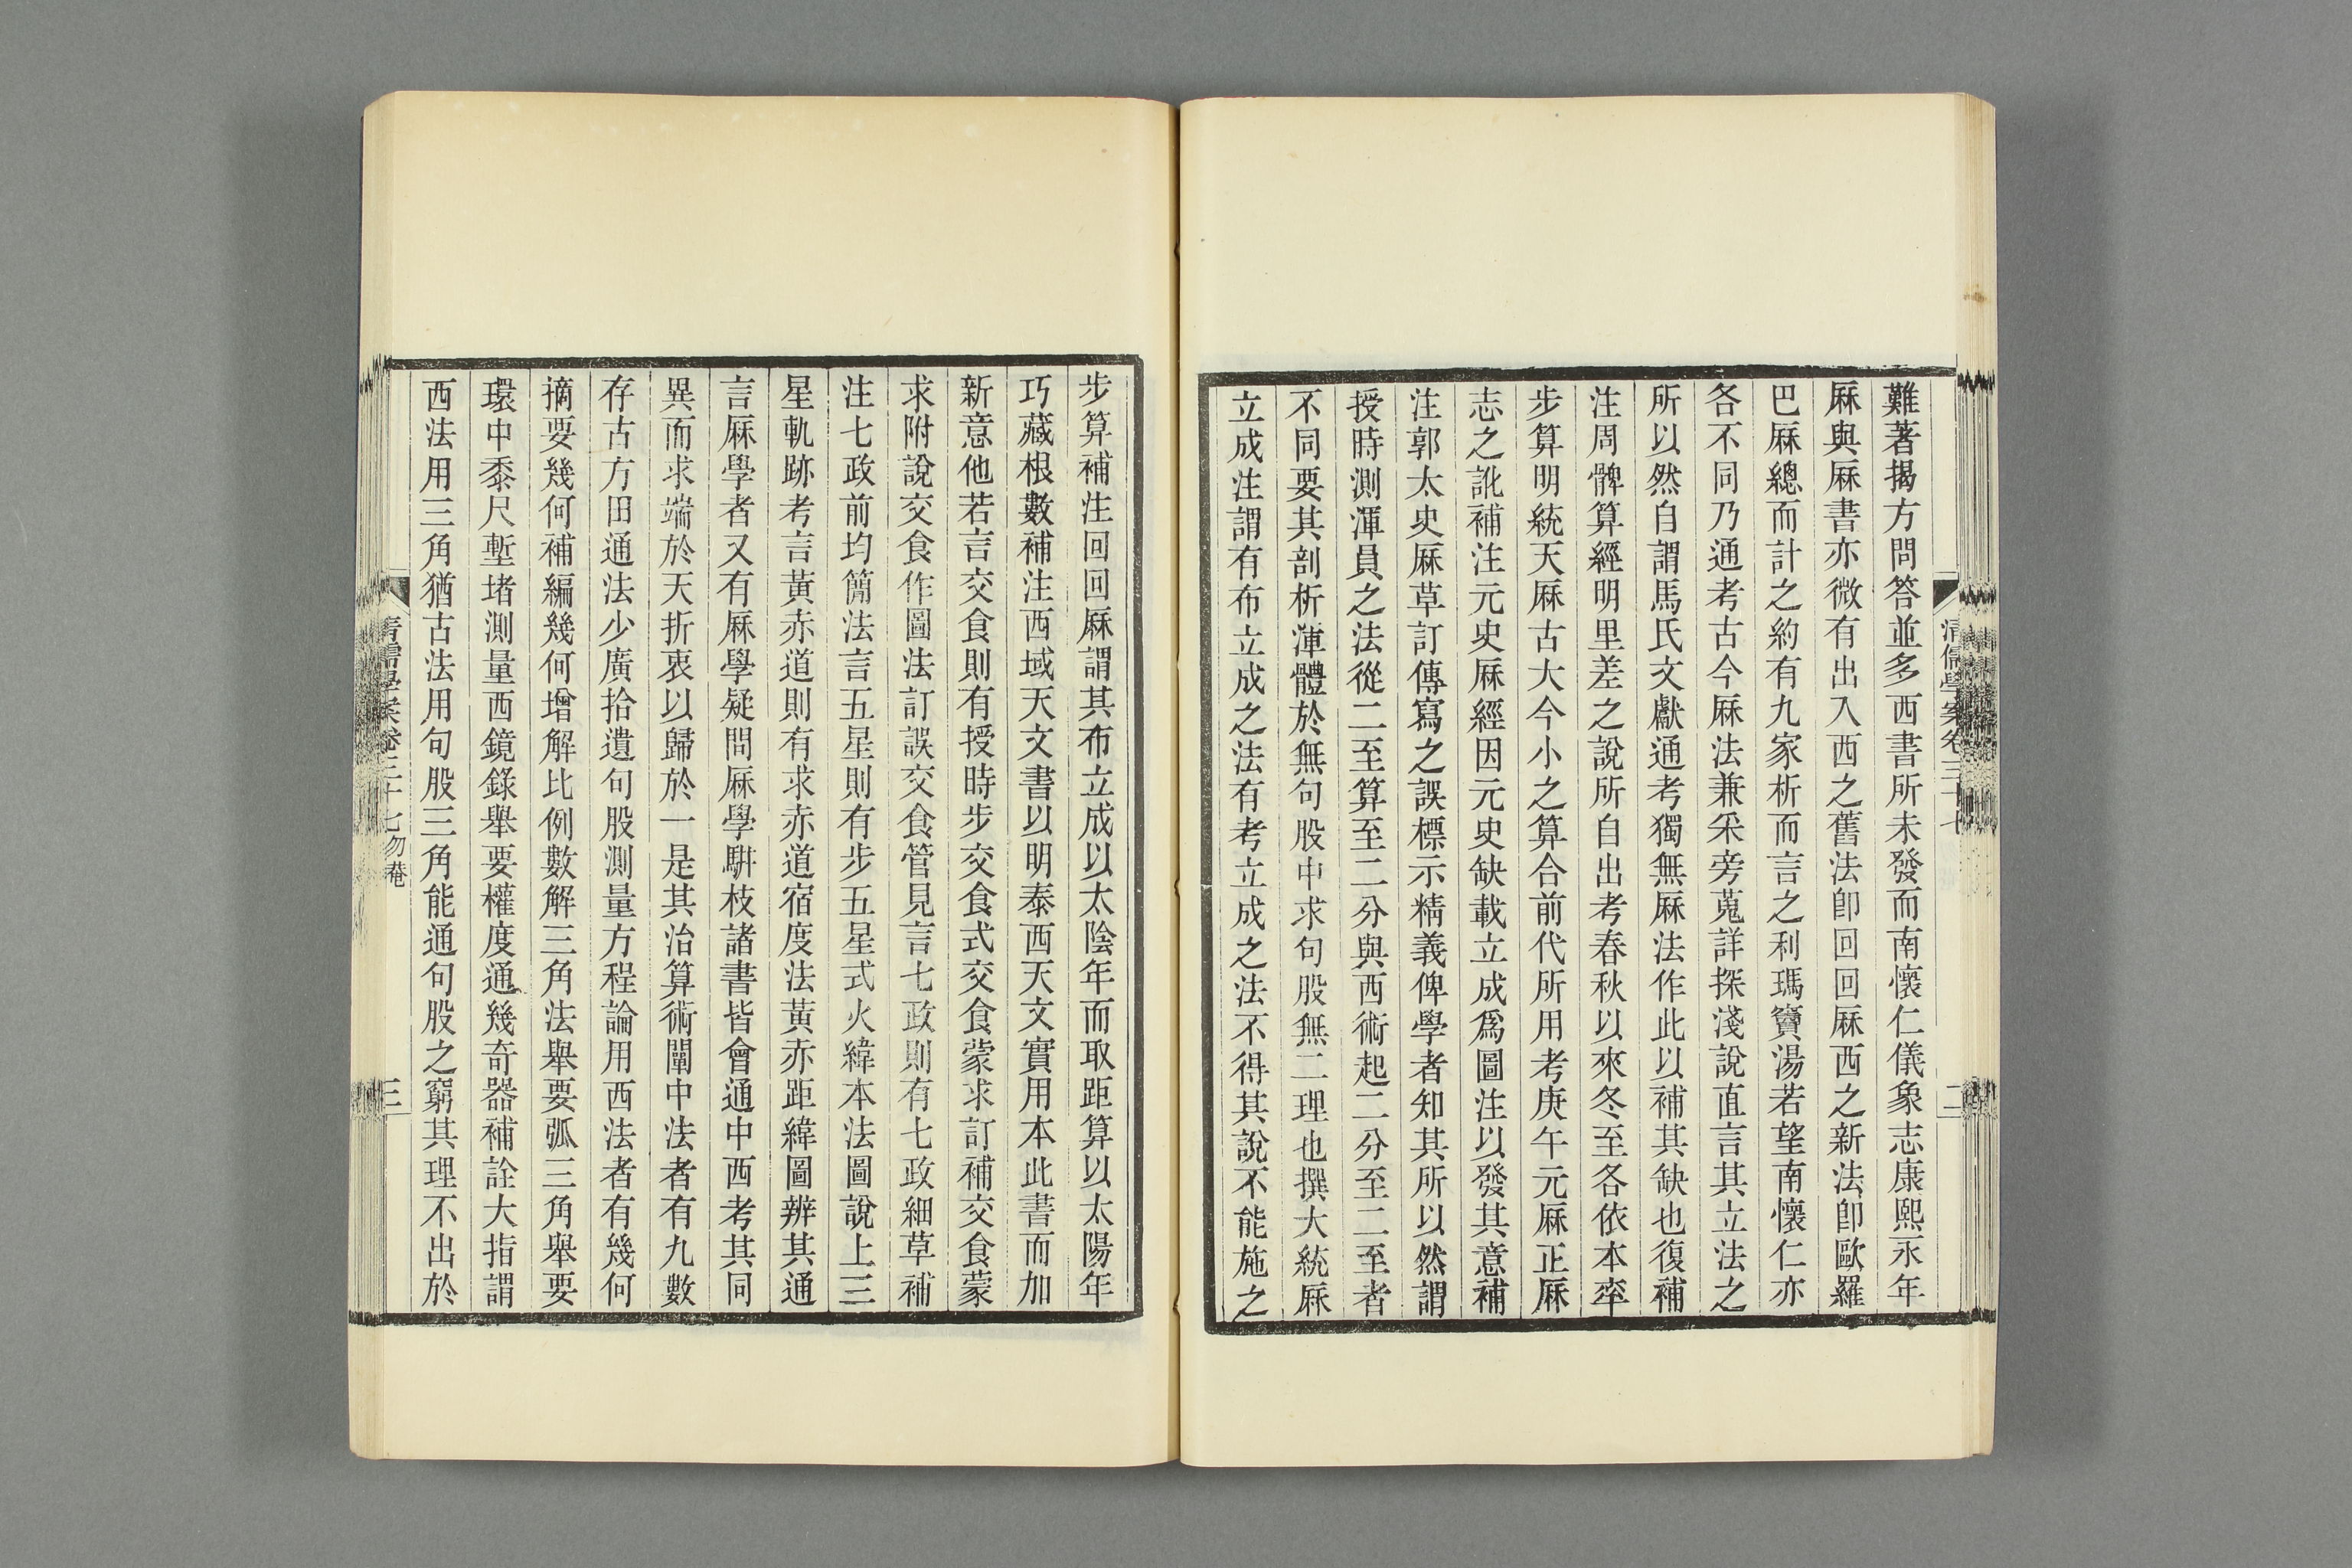 難著揭方問答並多西書所未發而南懷仁儀象志康熙永年
厤與厤書亦微有出入西之舊法卽回回厤西之新法卽歐羅
巴厤總而計之約有九家析而言之利瑪竇湯若望南懷仁亦
各不同乃通考古今厤法兼采旁蒐詳探淺說直言其立法之
所以然自謂馬氏文獻通考獨無厤法作此以補其缺也復補
注周髀算經明里差之說所自出考春秋以來冬至各依本率
步算明統天厤古大今小之算合前代所用考庚午元厤正厤
志之訛補注元史厤經因元史缺載立成爲圖注以發其意補
注郭太史厤草訂傳寫之誤標示精義俾學者知其所以然謂
授時測渾員之法從二至算至二分與西術起二分至二至者
不同要其剖析渾體於無句股中求句股無二理也撰大統厤
立成注謂有布立成之法有考立成之法不得其說不能施之
步算補注回回厤謂其布立成以太陰年而取距算以太陽年
巧藏根數補注西域天文書以明泰西天文實用本此書而加
新意他若言交食則有授時步交食式交食蒙求訂補交食蒙
求附說交食作圖法訂誤交食管見言七政則有七政細草補
注七政前均簡法言五星則有步五星式火緯本法圖說上三
星軌跡考言黃赤道則有求赤道宿度法黃赤距緯圖辨其通
言厤學者又有厤學疑問厤學駢枝諸書皆會通中西考其同
異而求端於天折衷以歸於一是其治算術闡中法者有九數
存古方田通法少廣拾遺句股測量方程論用西法者有幾何
摘要幾何補編幾何增解比例數解三角法舉要弧三角舉要
環中黍尺塹堵測量西鏡錄舉要權度通幾奇器補詮大指謂
西法用三角猶古法用句股三角能通句股之窮其理不出於
清儒學案卷三十七 勿菴
三
清儒學案卷三十七
二